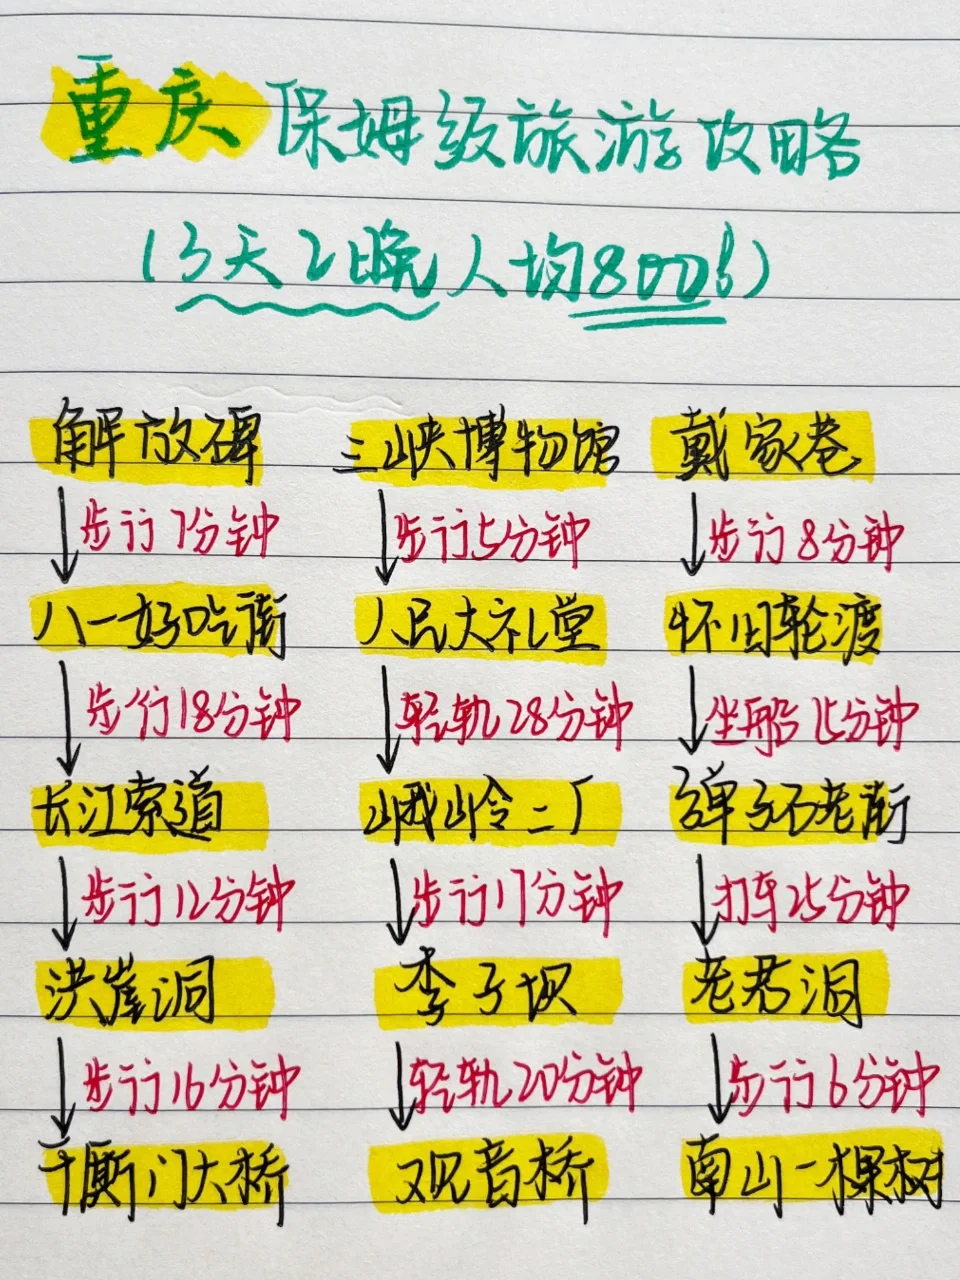 重庆保姆级旅游攻略
(3天2晚人均800!)
解放碑
步行7分钟
八一好吃街
步行18分钟
长江索道
步行12分钟
洪崖洞
步行16分钟
千厮门大桥
三峡博物馆
步行5分钟
人民大礼堂
轻轨28分钟
峨岭二厂
步行17分钟
李子坝
轻轨20分钟
观音桥
戴家巷
步行8分钟
怀旧轮渡
坐船15分钟
弹子石老街
打车25分钟
老君洞
步行6分钟
南山一棵树